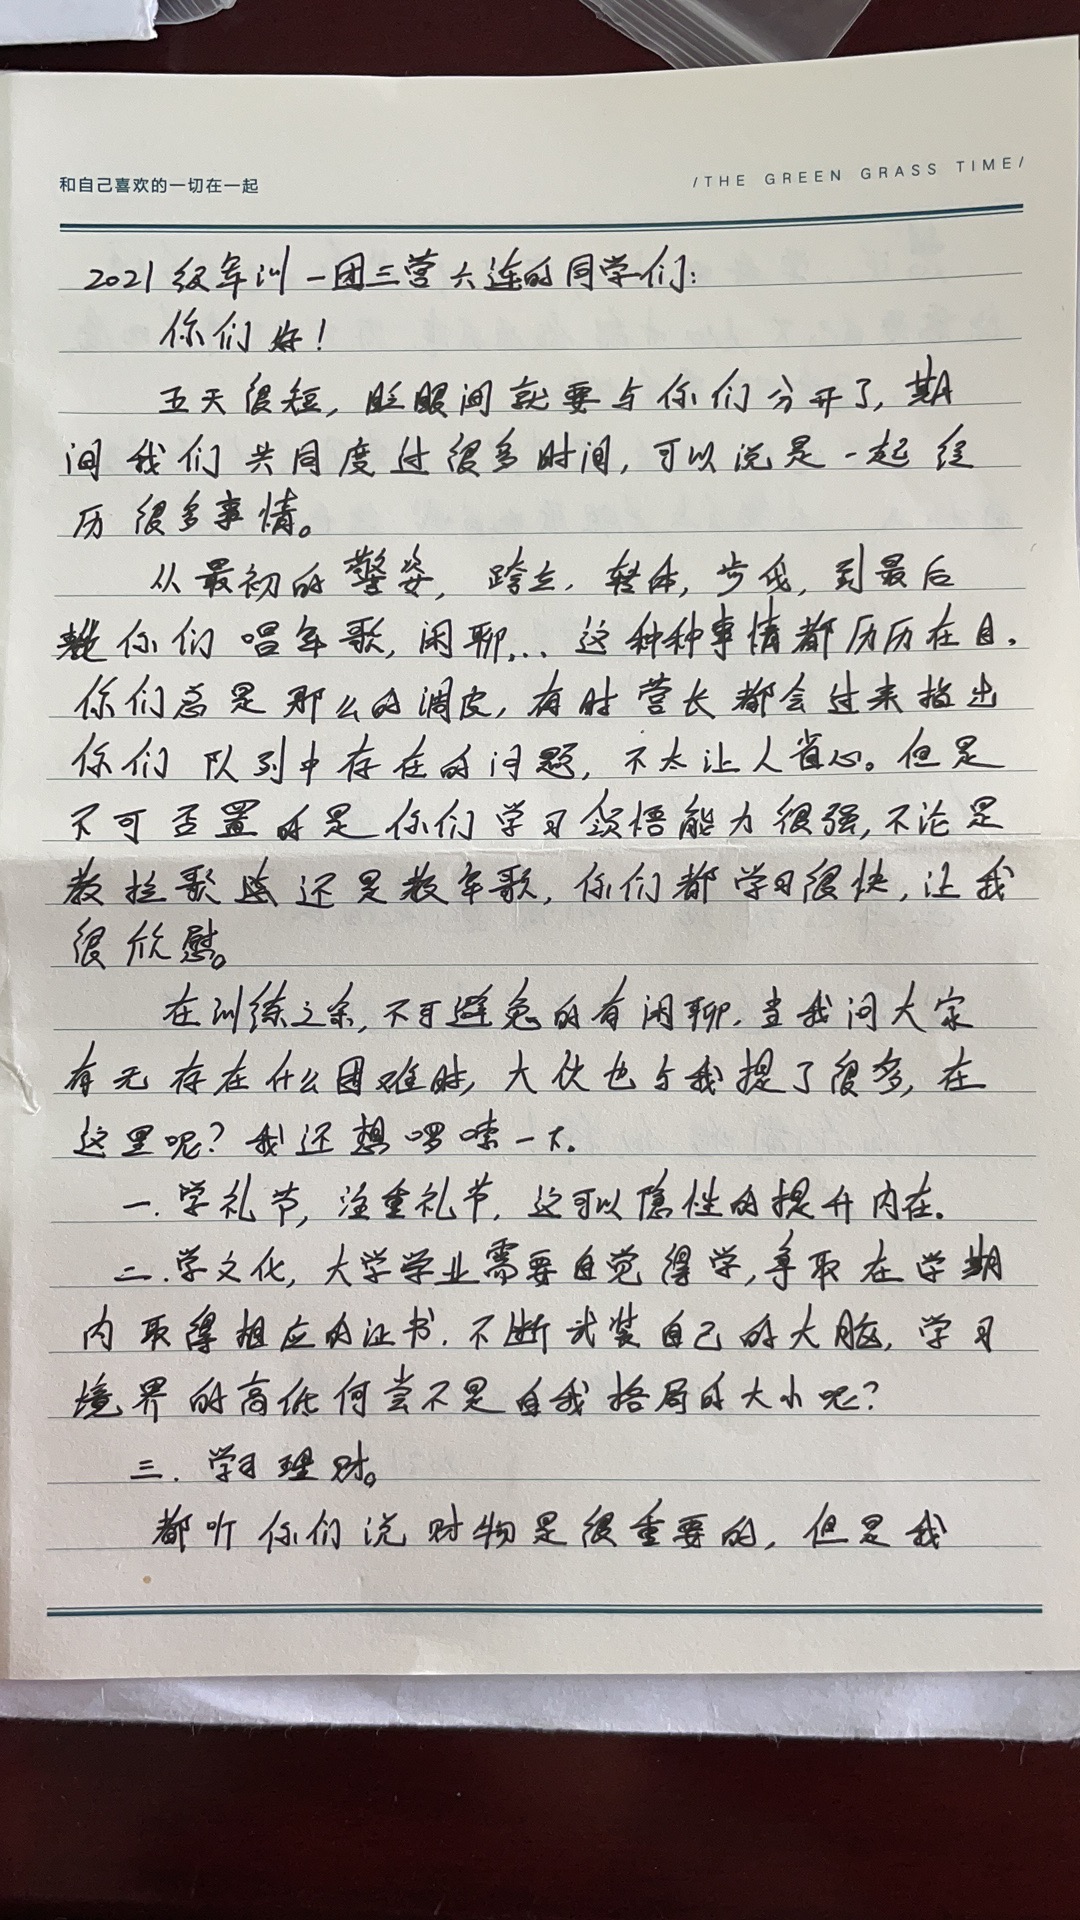 和自己喜欢的一切在一起
/THE GREEN GRASS TIME/
2021级军训一团三营六连的同学们:
你们好!
五天很短,眨眼间就要与你们分开了,期
间我们共同度过很多时间,可以说是一起经
历很多事情。
从最初的警姿,跨立,转体,步伐,到最后
教你们唱军歌,闲聊... 这种种事情都历历在目.
你们总是那么的调皮,有时营长都会过来指出
你们队列中存在的问题,不太让人省心。但是
不可否置的是你们学习领悟能力很强,不论是
教拉歌还是教军歌,你们都学习很快,让我
很欣慰。
在训练之余,不可避免的有闲聊.当我问大家
有无存在什么困难时,大伙也与我提了很多,在
这里呢?我还想啰嗦一下.
一.学礼节,注重礼节,这可以隐性的提升内在.
二.学文化,大学学业需要自觉得学,争取在学期
内取得相应的证书.不断武装自己的大脑,学习
境界的高低何尝不是自我格局的大小呢?
三.学习理财。
都听你们说财物是很重要的,但是我